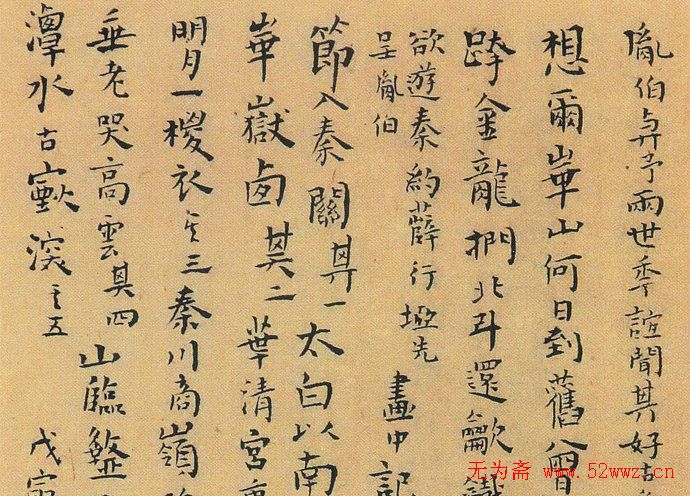 胤伯與予兩世年誼聞其好古
想爾崋山何日到舊曾
跨金龍捫北斗還歙
欲遊秦約薛行塢先
呈胤伯
畫中記
節入秦關其一太白以南
崋嶽卣其二華清宮
明月一稷衣其三秦川商嶺
垂老哭高雲其四山臨盩
潭水古湫其五
戊寅
无为斋 www.52wwz.cn